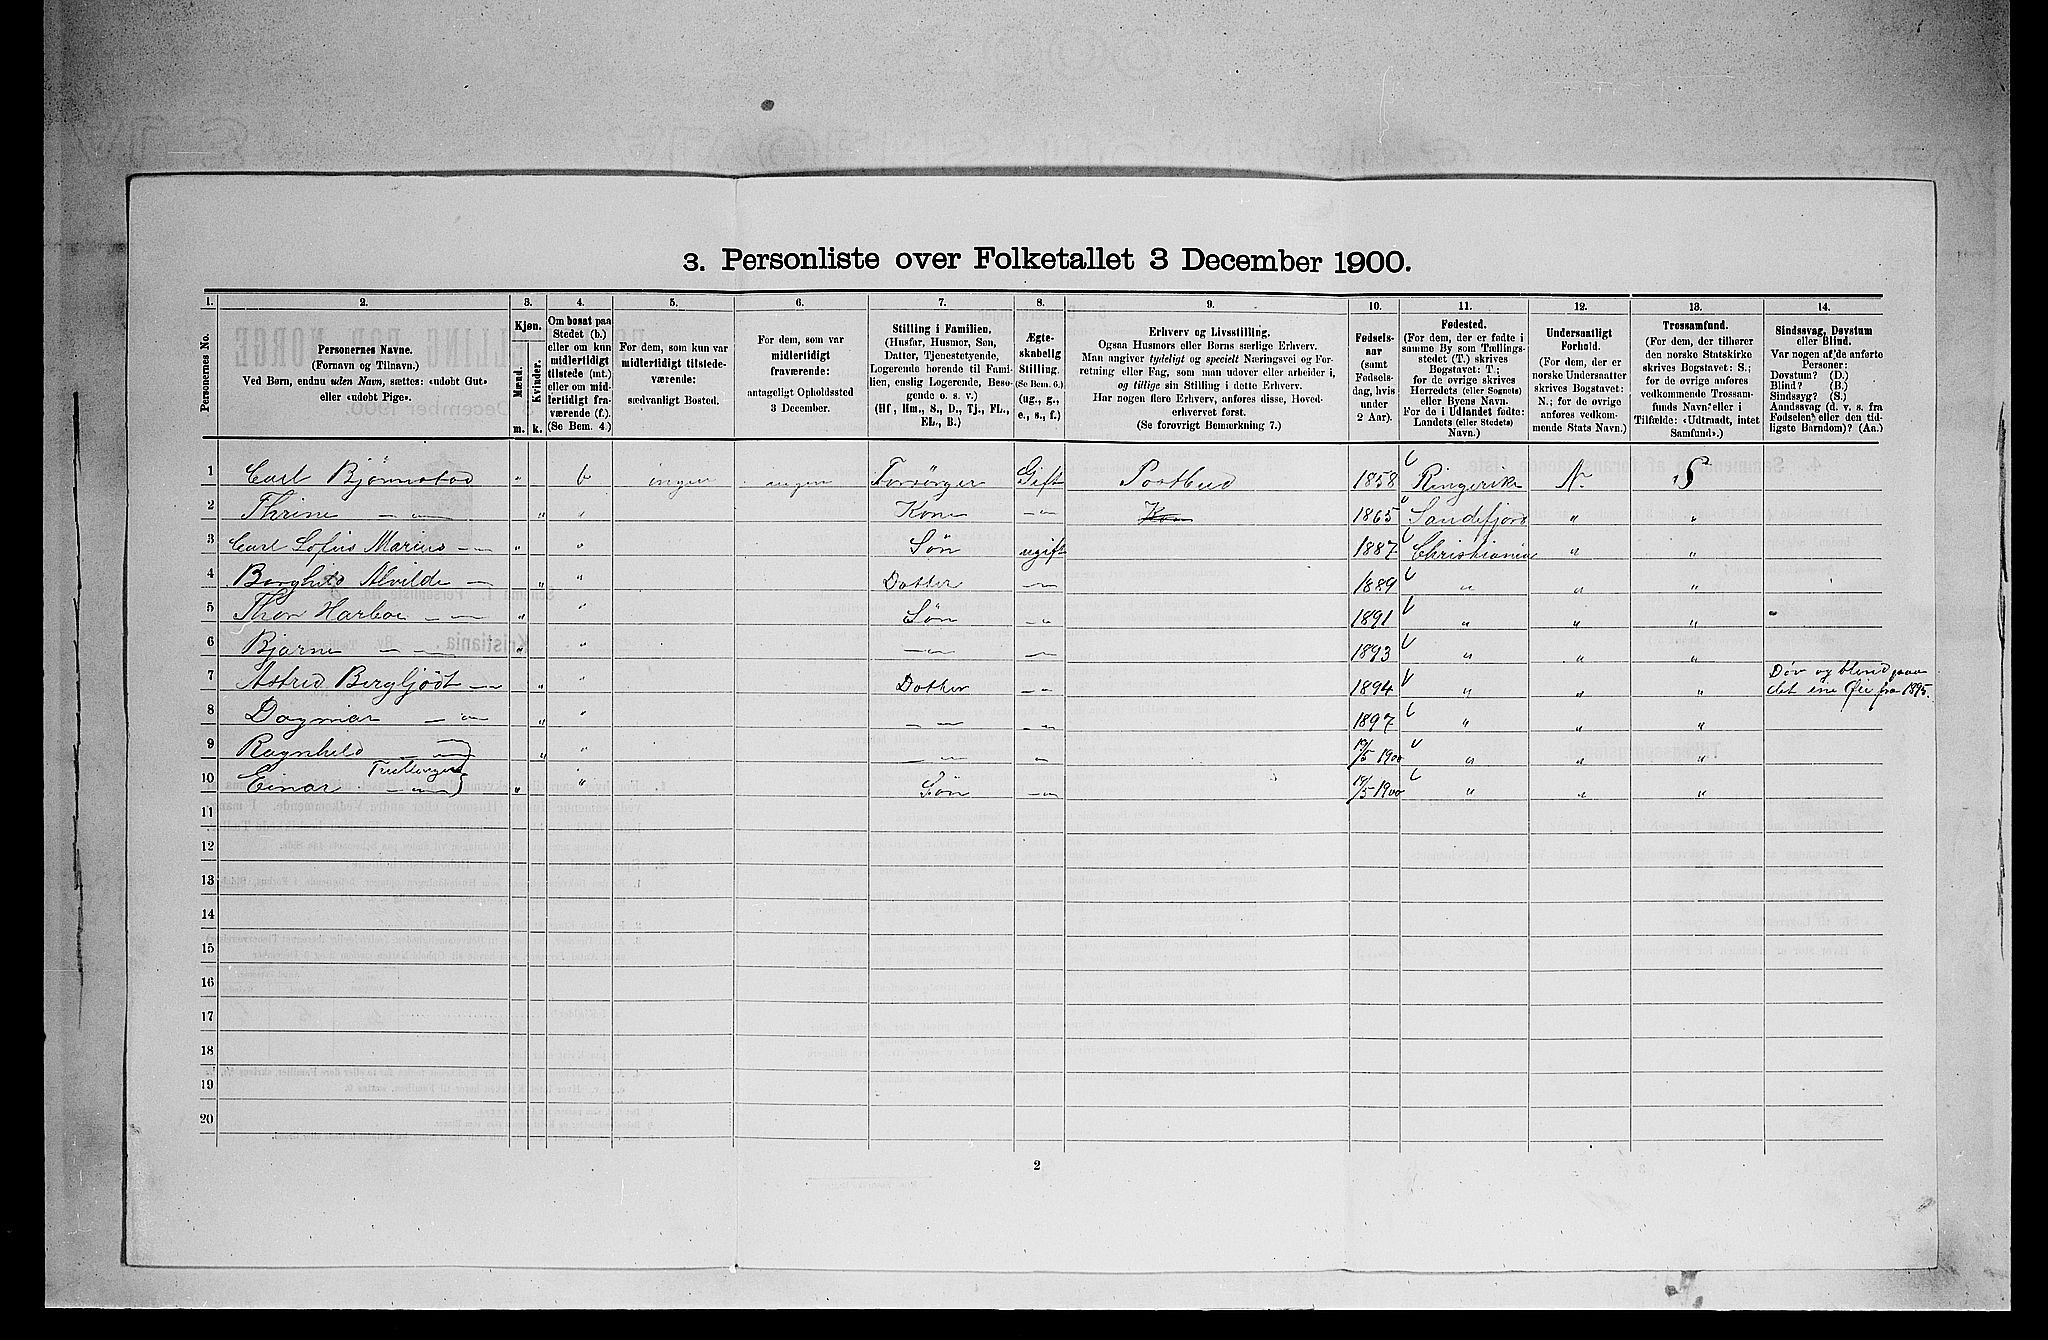 3. Personliste over Folketallet 3 December 1900.
1. 2. 3. 4. 5. 6. 7. 8. 9. 10. 11. 12. 13. 14.
Personernes No.
Personernes Navne.
(Fornavn og Tilnavn.)
Ved Børn, endnu uden Navn, sættes: «udøbt Gut»
eller «udøbt Pige».
Kjøn.
Mænd.
Kvinder.
m. k.
Om bosat paa
Stedet (b.)
eller om kun
midlertidigt
tilstede (mt.)
eller om mid-
lertidigt fra-
værende (f.).
(Se Bem. 4.)
For dem, som kun var
midlertidigt tilstede-
værende:
sædvanligt Bosted.
For dem, som var
midlertidigt
fraværende:
antageligt Opholdssted
3 December.
Stilling i Familien.
(Husfar, Husmor, Søn,
Datter, Tjenestetyende,
Logerende hørende til Fami-
lien, enslig Logerende, Besø-
gende o. s. v.)
(Hf, Hm., S., D., Tj., FL.,
EL., B.)
Ægte-
skabelig
Stilling.
(Se Bem. 6.)
(ug., g.,
e., s., f.)
Erhverv og Livsstilling.
Ogsaa Husmors eller Børns særlige Erhverv.
Man angiver tydeligt og specielt Næringsvei og For-
retning eller Fag, som man udøver eller arbeider i,
og tillige sin Stilling i dette Erhverv.
Har nogen flere Erhverv, anføres disse, Hoved-
erhvervet først.
(Se forøvrigt Bemærkning 7.)
Fødsels-
aar
(samt
Fødsels-
dag, hvis
under
2 Aar).
Fødested.
(For dem, der er fødte i
samme By som Tællings-
stedet (T.) skrives
Bogstavet: T.;
for de øvrige skrives
Herredets (eller Sognets)
eller Byens Navn.
For de i Udlandet fødte:
Landets (eller Stedets)
Navn.)
Undersaatligt
Forhold.
(For dem, der er
norske Undersaatter
skrives Bogstavet:
N.; for de øvrige
anføres vedkom-
mende Stats Navn.)
Trossamfund.
(For dem, der tilhører
den norske Statskirke
skrives Bogstavet: S.;
for de øvrige anføres
vedkommende Trossam-
funds Navn eller i
Tilfælde: «Udtraadt, intet
Samfund».)
Sindssvag, Døvstum
eller Blind.
Var nogen af de anførte
Personer:
Døvstum? (D.)
Blind? (B.)
Sindssyg? (S.)
Aandssvag (d. v. s. fra
Fødselen eller den tid-
ligste Barndom)? (Aa.)
1 Carl Bjørnstad " b ingen ingen Forsørger Gift Postbud 1858 Ringerike N. S
2 Thrine — — " " Kone — 1865 Sandefjord " "
3 Carl Sofus Marius — " " Søn ugift 1887 Christiania " "
4 Borghild Alvilde — " " Datter — 1889 " " "
5 Thor Harboe — — " " Søn — 1891 " " "
6 Bjarne — — " " — 1893 " " "
7 Astrid Bergljødt — " " Datter — 1894 " " " Døv og blind paa
det ene Øie fra 1895.
8 Dagmar — — " " — — 1897 " " "
9 Ragnhild — — " " — — — 19/5 1900 " " "
Trillinger
10 Einar — " " Søn — 19/5 1900 " " "
11
12
13
14
15
16
17
18
19
20
2